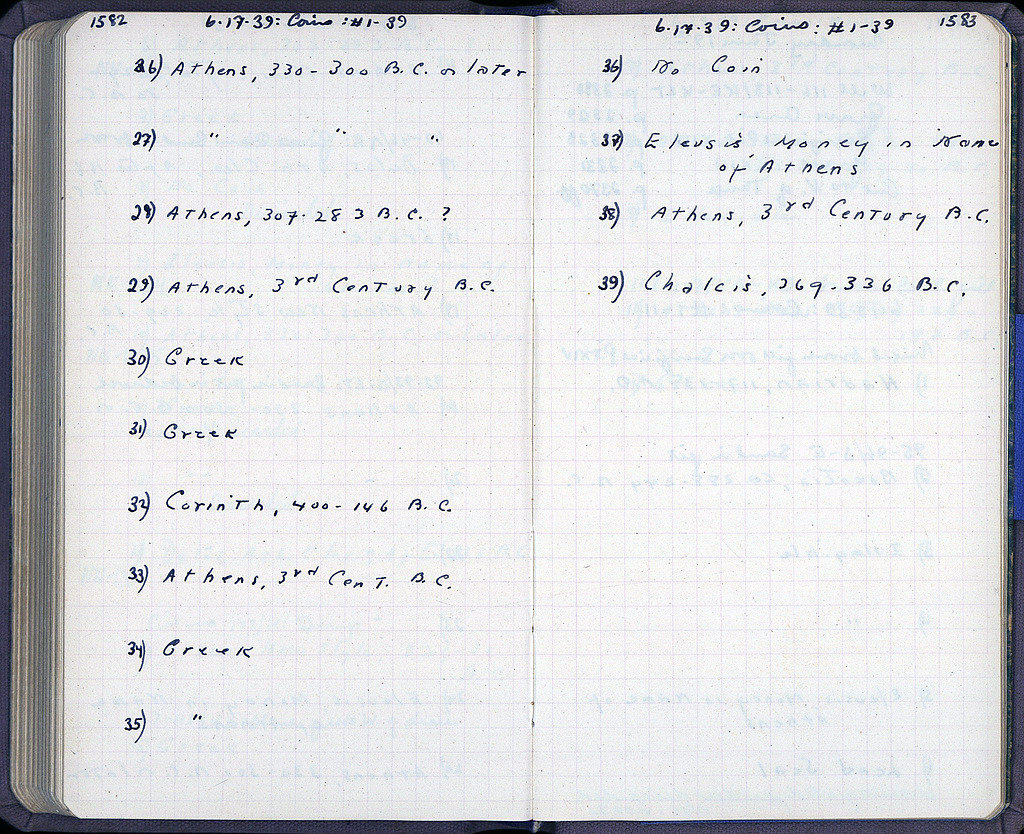 1582
6.17.39: Coins: #1-39
26) Athens, 330-300 B.C. or later
27) " " "
28) Athens, 307-283 B.C. ?
29) Athens, 3rd Century B.C.
30) Greek
31) Greek
32) Corinth, 400-146 B.C.
33) Athens, 3rd Cent. B.C.
34) Greek
35) "
6.17.39: Coins: #1-39
1583
36) No Coin
37) Eleusis Money in Name
of Athens
38) Athens, 3rd Century B.C.
39) Chalcis, 369-336 B.C.